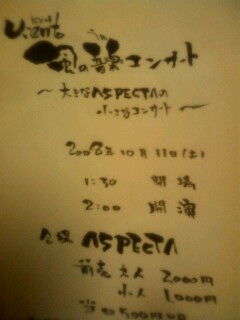 Viento
風の音楽コンサート
〜大きなASPECTAの
小さなコンサート〜
2008年10月11日(土)
1:30 開場
2:00 開演
会場 ASPECTA
前売 大人 2,000円
小人 1,000円
当日500円UP